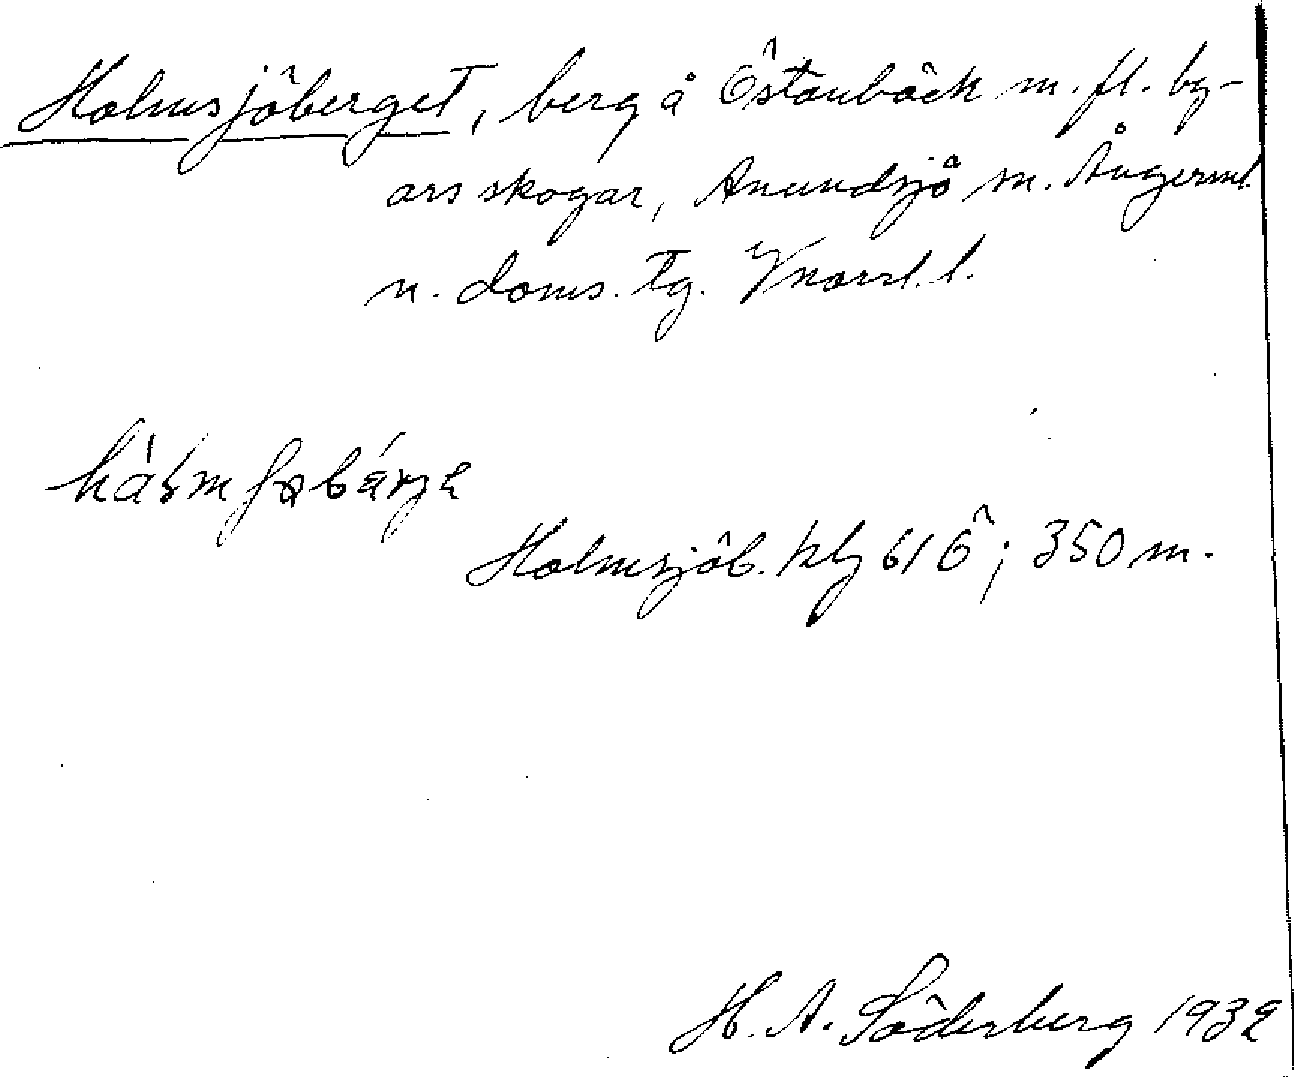 Holmsjöberget, berg å Östanbäck m. fl. by-
ars skogar, Anundsjö sn. Ångerml.
n. doms. tg. Vnorrl. l.
Holmsjöb. klg 61 Ö; 350 m.
H. A. Söderberg 1932